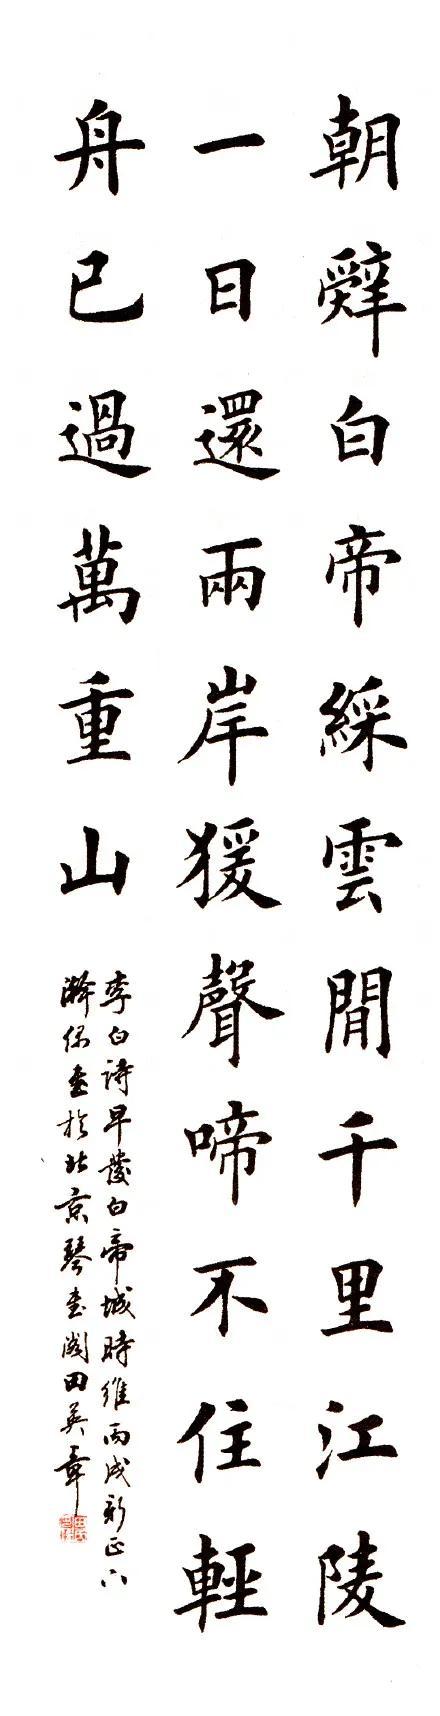 朝辤白帝綵雲閒千里江陵
一日還兩岸猨聲啼不住輕
舟已過萬重山
李白詩早發白帝城時維丙戌新正下
澣書於北京琴書閣田英章